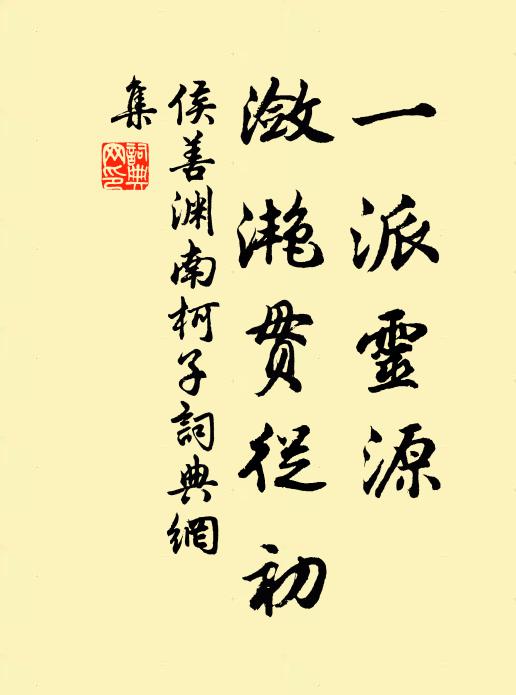 一派靈源
瀲灔貫從初
侯善渊南柯子詞典網
集
詞典網印